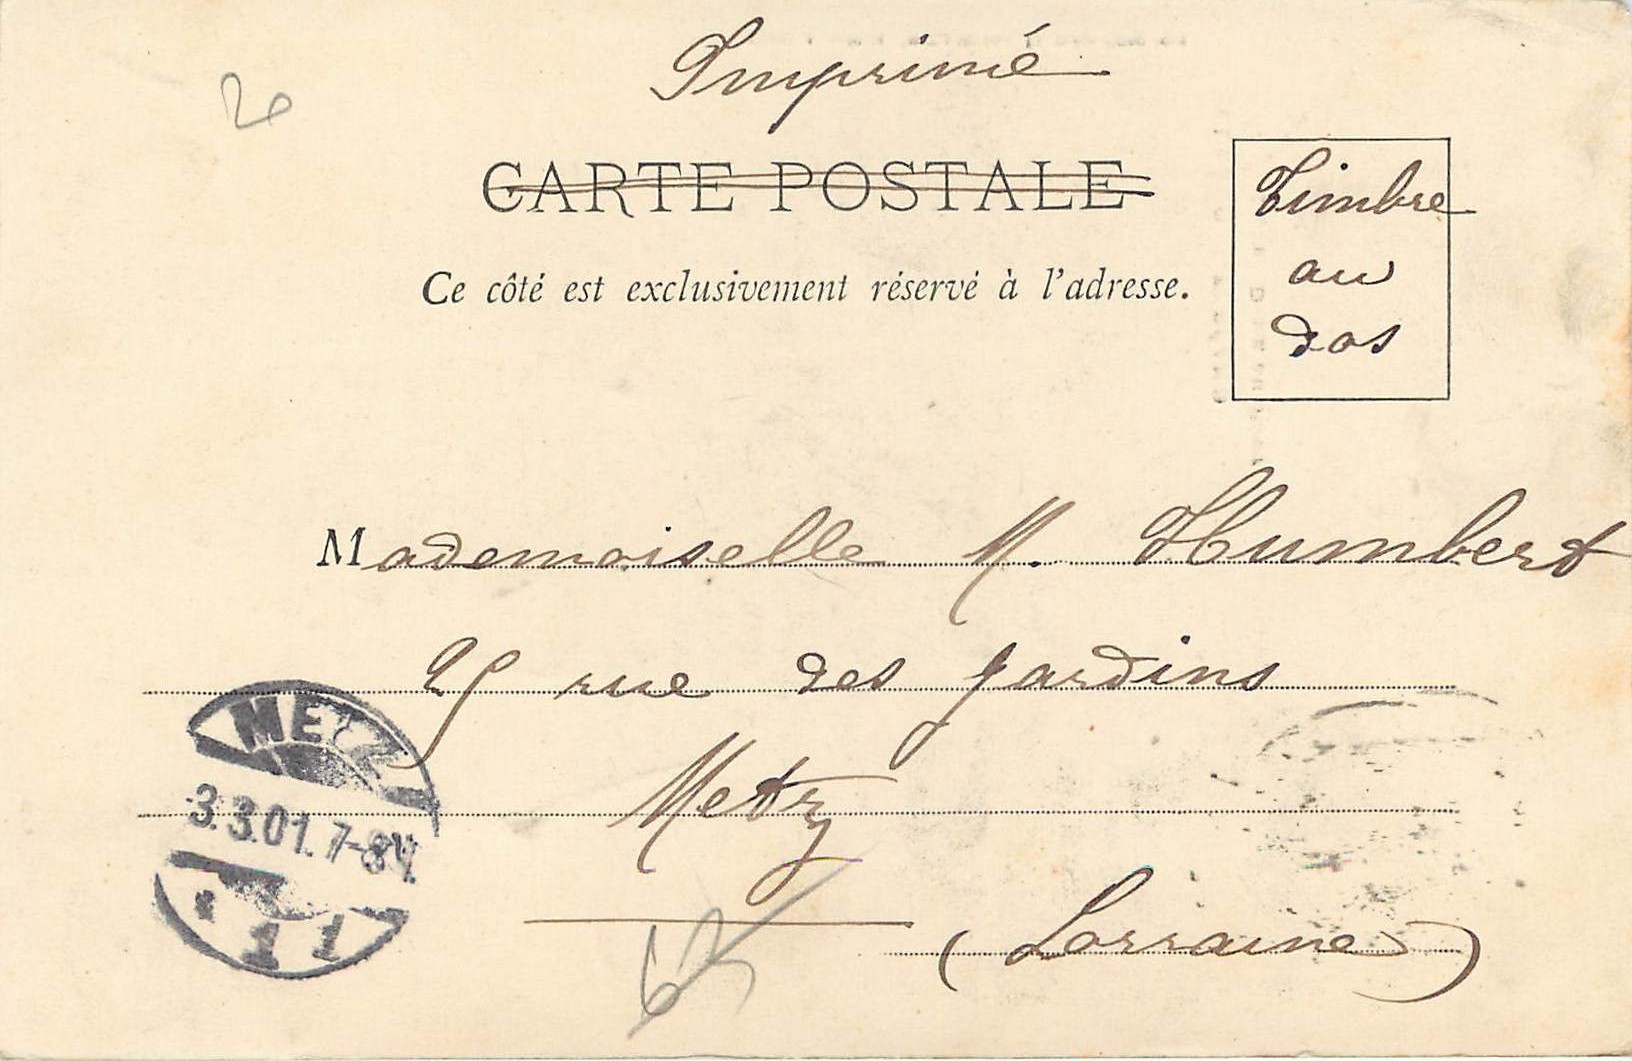 Imprimé
CARTE POSTALE
Ce côté est exclusivement réservé à l'adresse.
Timbre
au
dos
Mademoiselle M. Humbert
25 rue des Jardins
Metz
(Lorraine)
METZ
3.3.01. 7-8V.
* 1 1